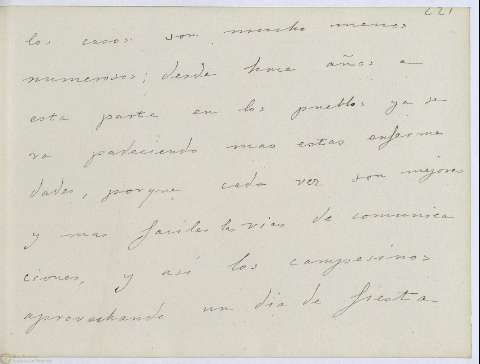 221
los casos son mucho menos
numerosos; desde hace años a
esta parte en los pueblos ya se
va padeciendo mas estas enferme
dades, porque cada vez son mejores
y mas faciles las vias de comunica
ciones, y asi los campesinos
aprovechando un dia de fiesta